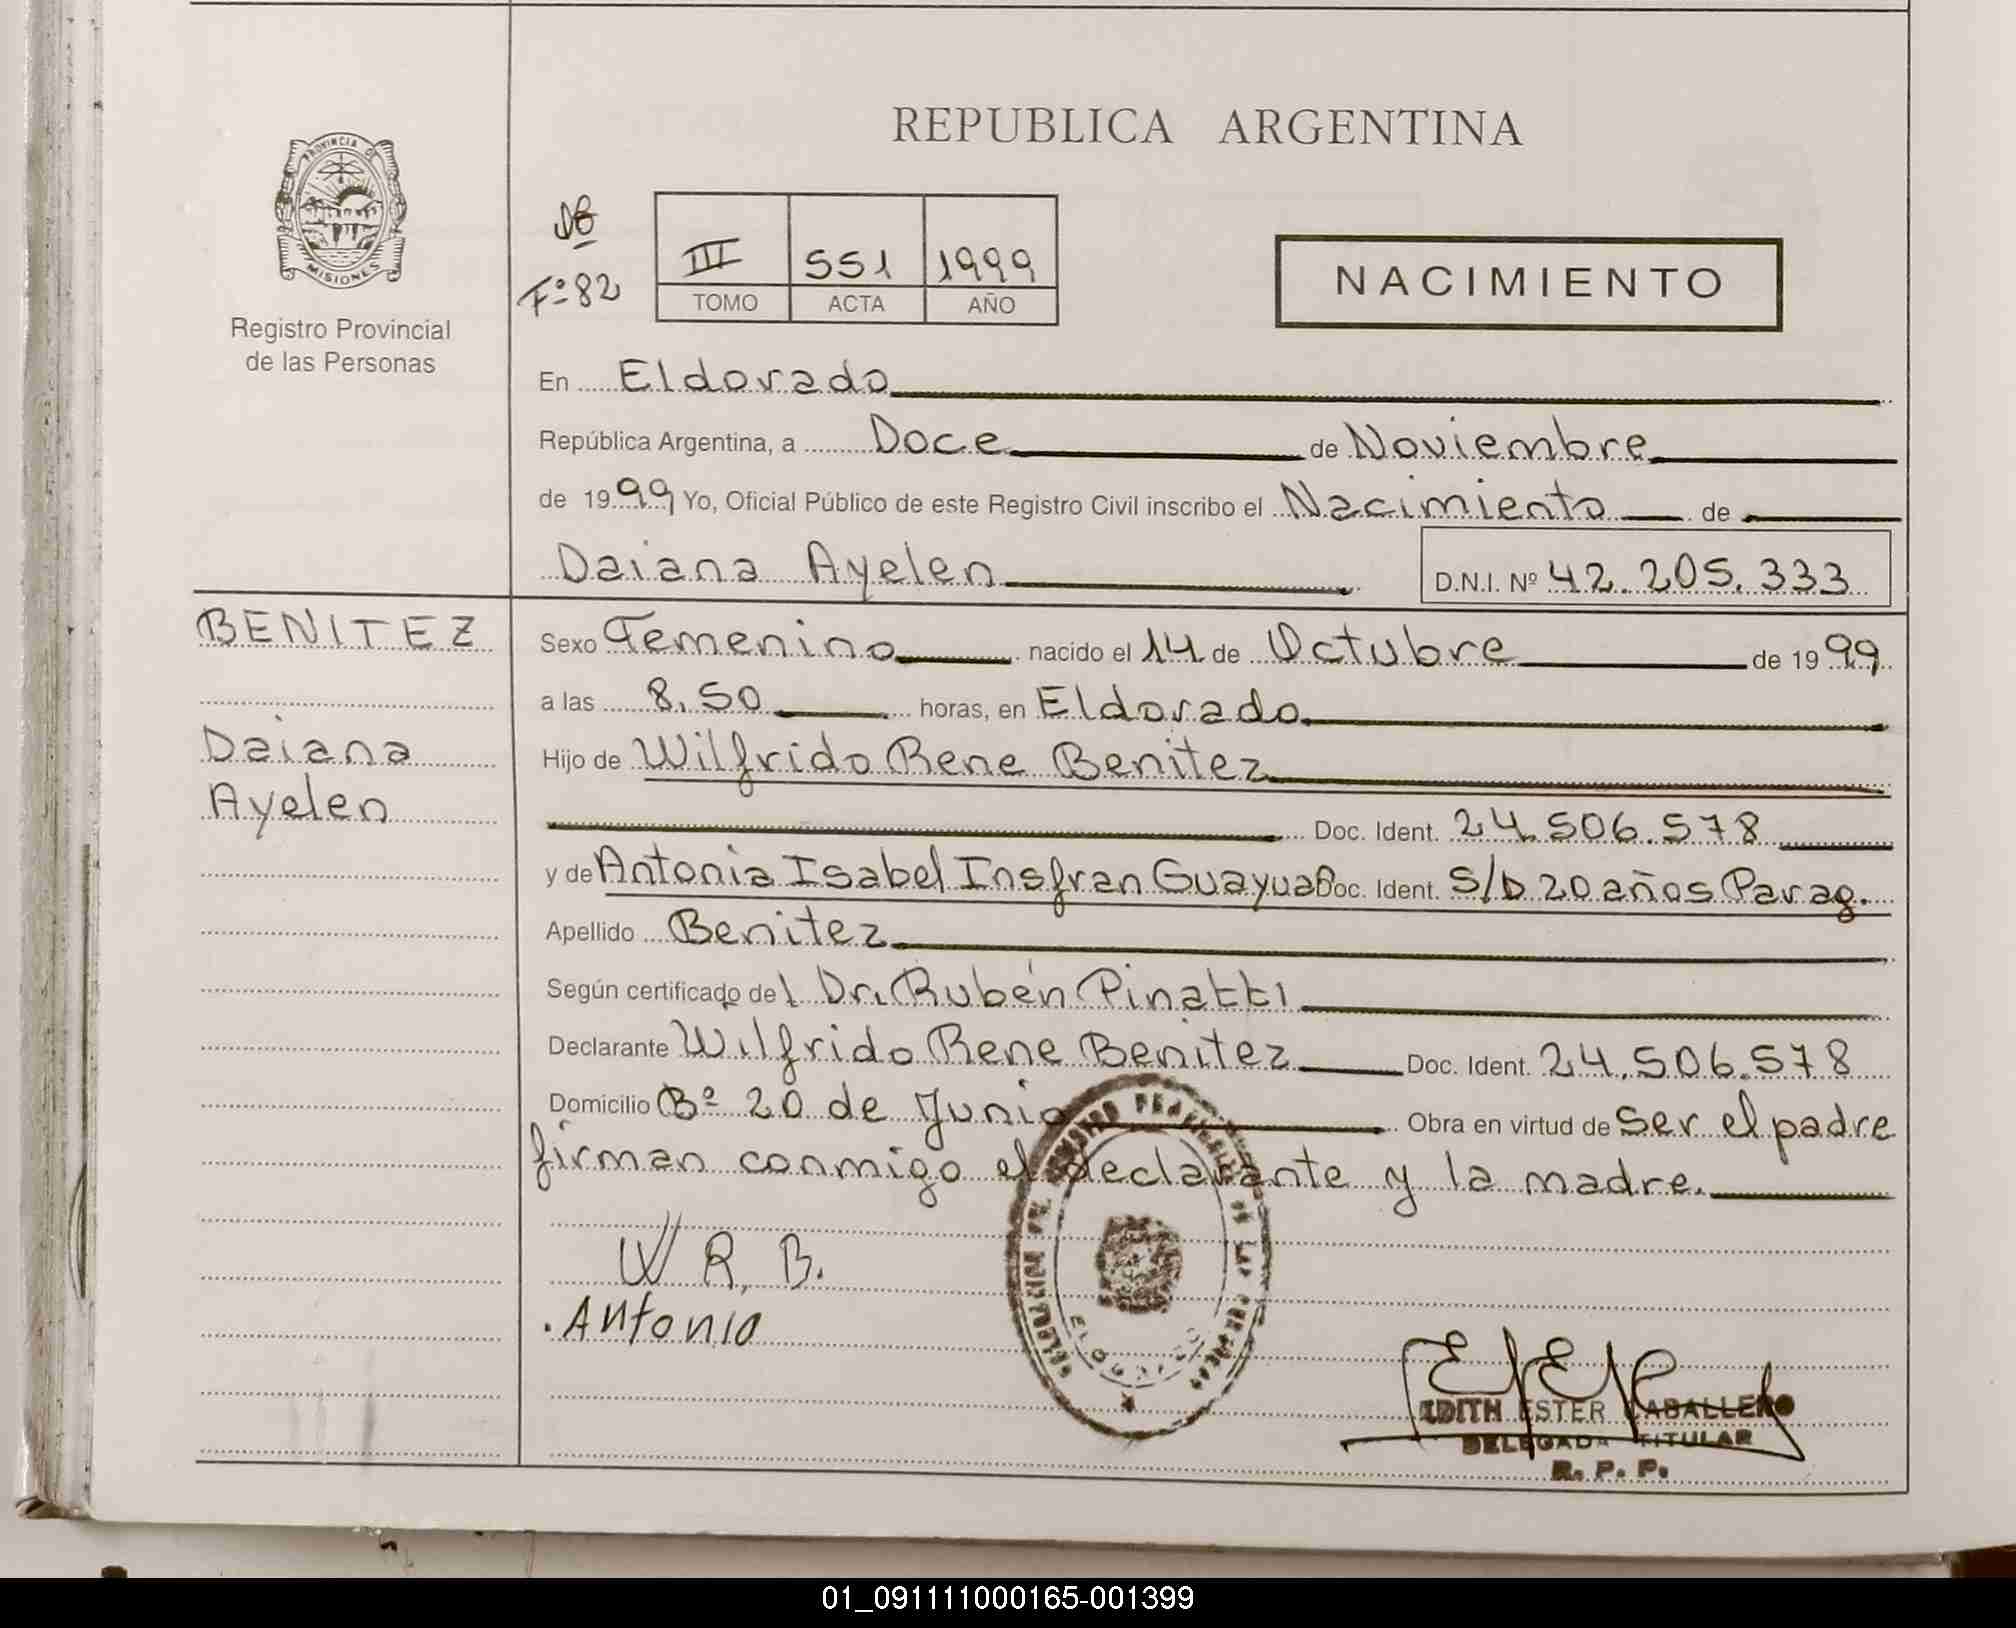 REPUBLICA ARGENTINA
PROVINCIA DE
MISIONES
Registro Provincial
de las Personas
Fº 82
III 551 1999
TOMO ACTA AÑO
NACIMIENTO
En Eldorado
República Argentina, a Doce de Noviembre
de 1999 Yo, Oficial Público de este Registro Civil inscribo el Nacimiento de
Daiana Ayelen D.N.I. Nº 42.205.333
BENITEZ
Daiana
Ayelen
Sexo Femenino nacido el 14 de Octubre de 1999
a las 8,50 horas, en Eldorado
Hijo de Wilfrido Rene Benitez
Doc. Ident. 24.506.578
y de Antonia Isabel Insfran Guayua Doc. Ident. S/D 20 años Parag.
Apellido Benitez
Según certificado del Dr. Rubén Pinatti
Declarante Wilfrido Rene Benitez Doc. Ident. 24.506.578
Domicilio Bº 20 de Junio Obra en virtud de ser el padre
firman conmigo el declarante y la madre.
W R. B.
. Antonia
ELDORADO
EDITH ESTER CABALLERO
DELEGADA TITULAR
R. P. P.
01_091111000165-001399